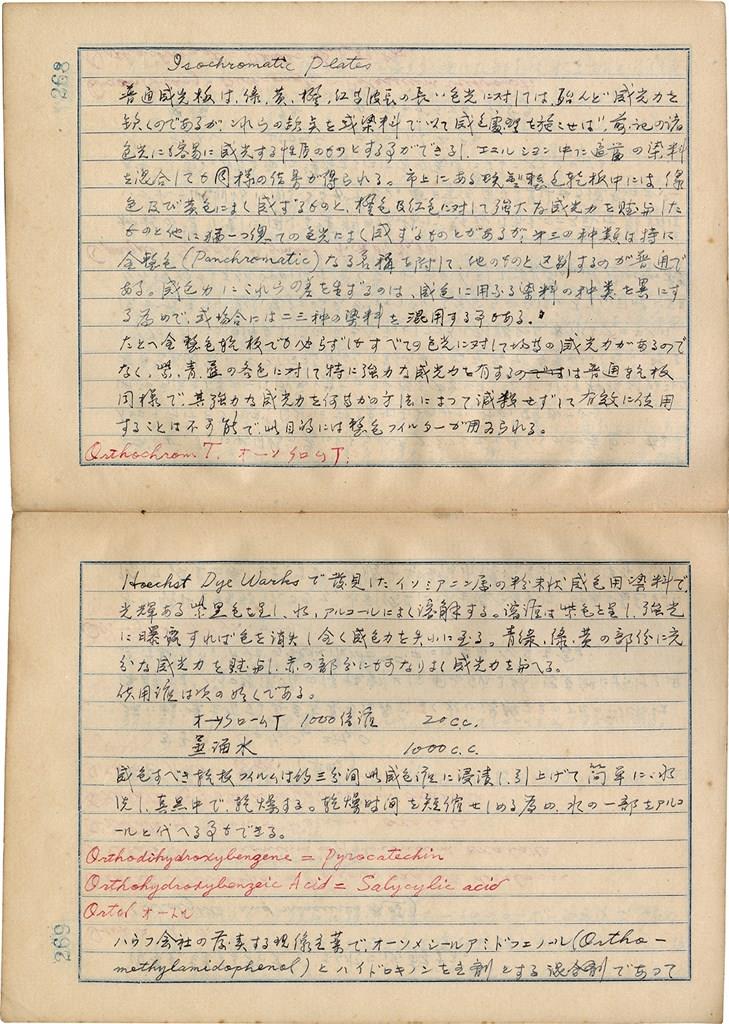 268
Isochromatic Plates
普通感光板は、緑、黄、橙、红等波長の長い色光に対しては、殆んど感光力を
欠くのであるが これらの欠点を或染料で以て感色處理を施こせば、前記の諸
色光にも容易に感光する性質のものとする事ができるし、エマルシヨン中に適当の染料
を混合しても同様の结果が得られる。市上にある現整色乾板中には、緑
色及び黄色によく感ずるものと、橙色及红色に対して強大な感光力を賦与した
ものと他に 一つ総ての色光によく感ずるものとがあるが、第三の種類は特に
全整色(Panchromatic)なる名稱を附して、他のものと区別するのが普通で
ある。感色力にこれらの差を生ずるのは、感色に用ふる染料の种類を異にす
る為めで、或場合には二三种の染料を混用する事がある。
たとへ全整色乾板でも必らずしもすべての色光に対して均等の感光力があるので
なく、紫、青、藍の各色に対して特に強力な感光力を有するのは普通乾板
同様で、其強力な感光力を何等かの方法によつて減殺せずして有效に使用
することは不可能で、此目的には整色フィルターが用ゐられる。
Orthochrom T. オーソクロムT.
Hoechst Dye Warks で發見したイソシアニン属の粉末状感色用染料で、
光輝ある紫黒色を呈し、水、アルコールによく溶解する。溶液は紫色を呈し、強光
に曝露すれば色を消失し全く感色力を失ふに至る。青緑、緑、黄の部分に充
分な感光力を賦与し、赤の部分にもかなりよく感光力を与へる。
使用液は次の如くである。
オーソクロームT 1000倍液 20c.c.
普通水 1000c.c.
感色すべき乾板フィルムは約三分間此感色液に浸漬し、引上げて簡単に、水
洗し、真黒中で、乾燥する。乾燥时间を短縮せしめる為め、水の一部をアルコ
ールと代へる事もできる。
Orthodihydroxybengene = Pyrocatechin
Orthohydroxybenzeic Acid = Salycylic acid
Ortol オートル
269
ハウフ会社の發賣する現像主薬で、オーソメシールアミドフエノール(Ortho-
methylamidophenol)とハイドロキノンを主劑とする混合劑であつて